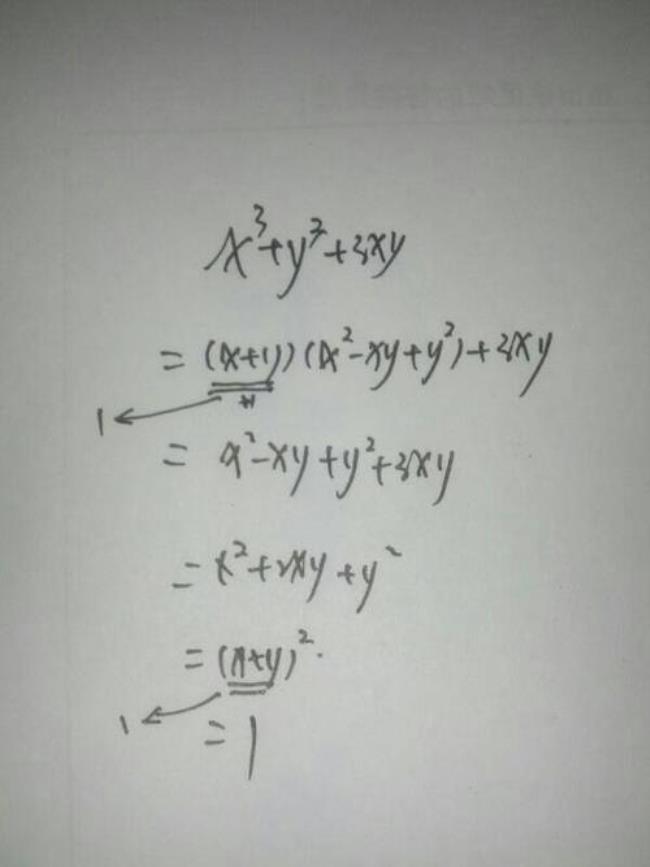 x³+y³+3xy
= (x+y)(x²-xy+y²)+3xy
1
= x²-xy+y²+3xy
= x²+2xy+y²
= (x+y)².
1
= 1